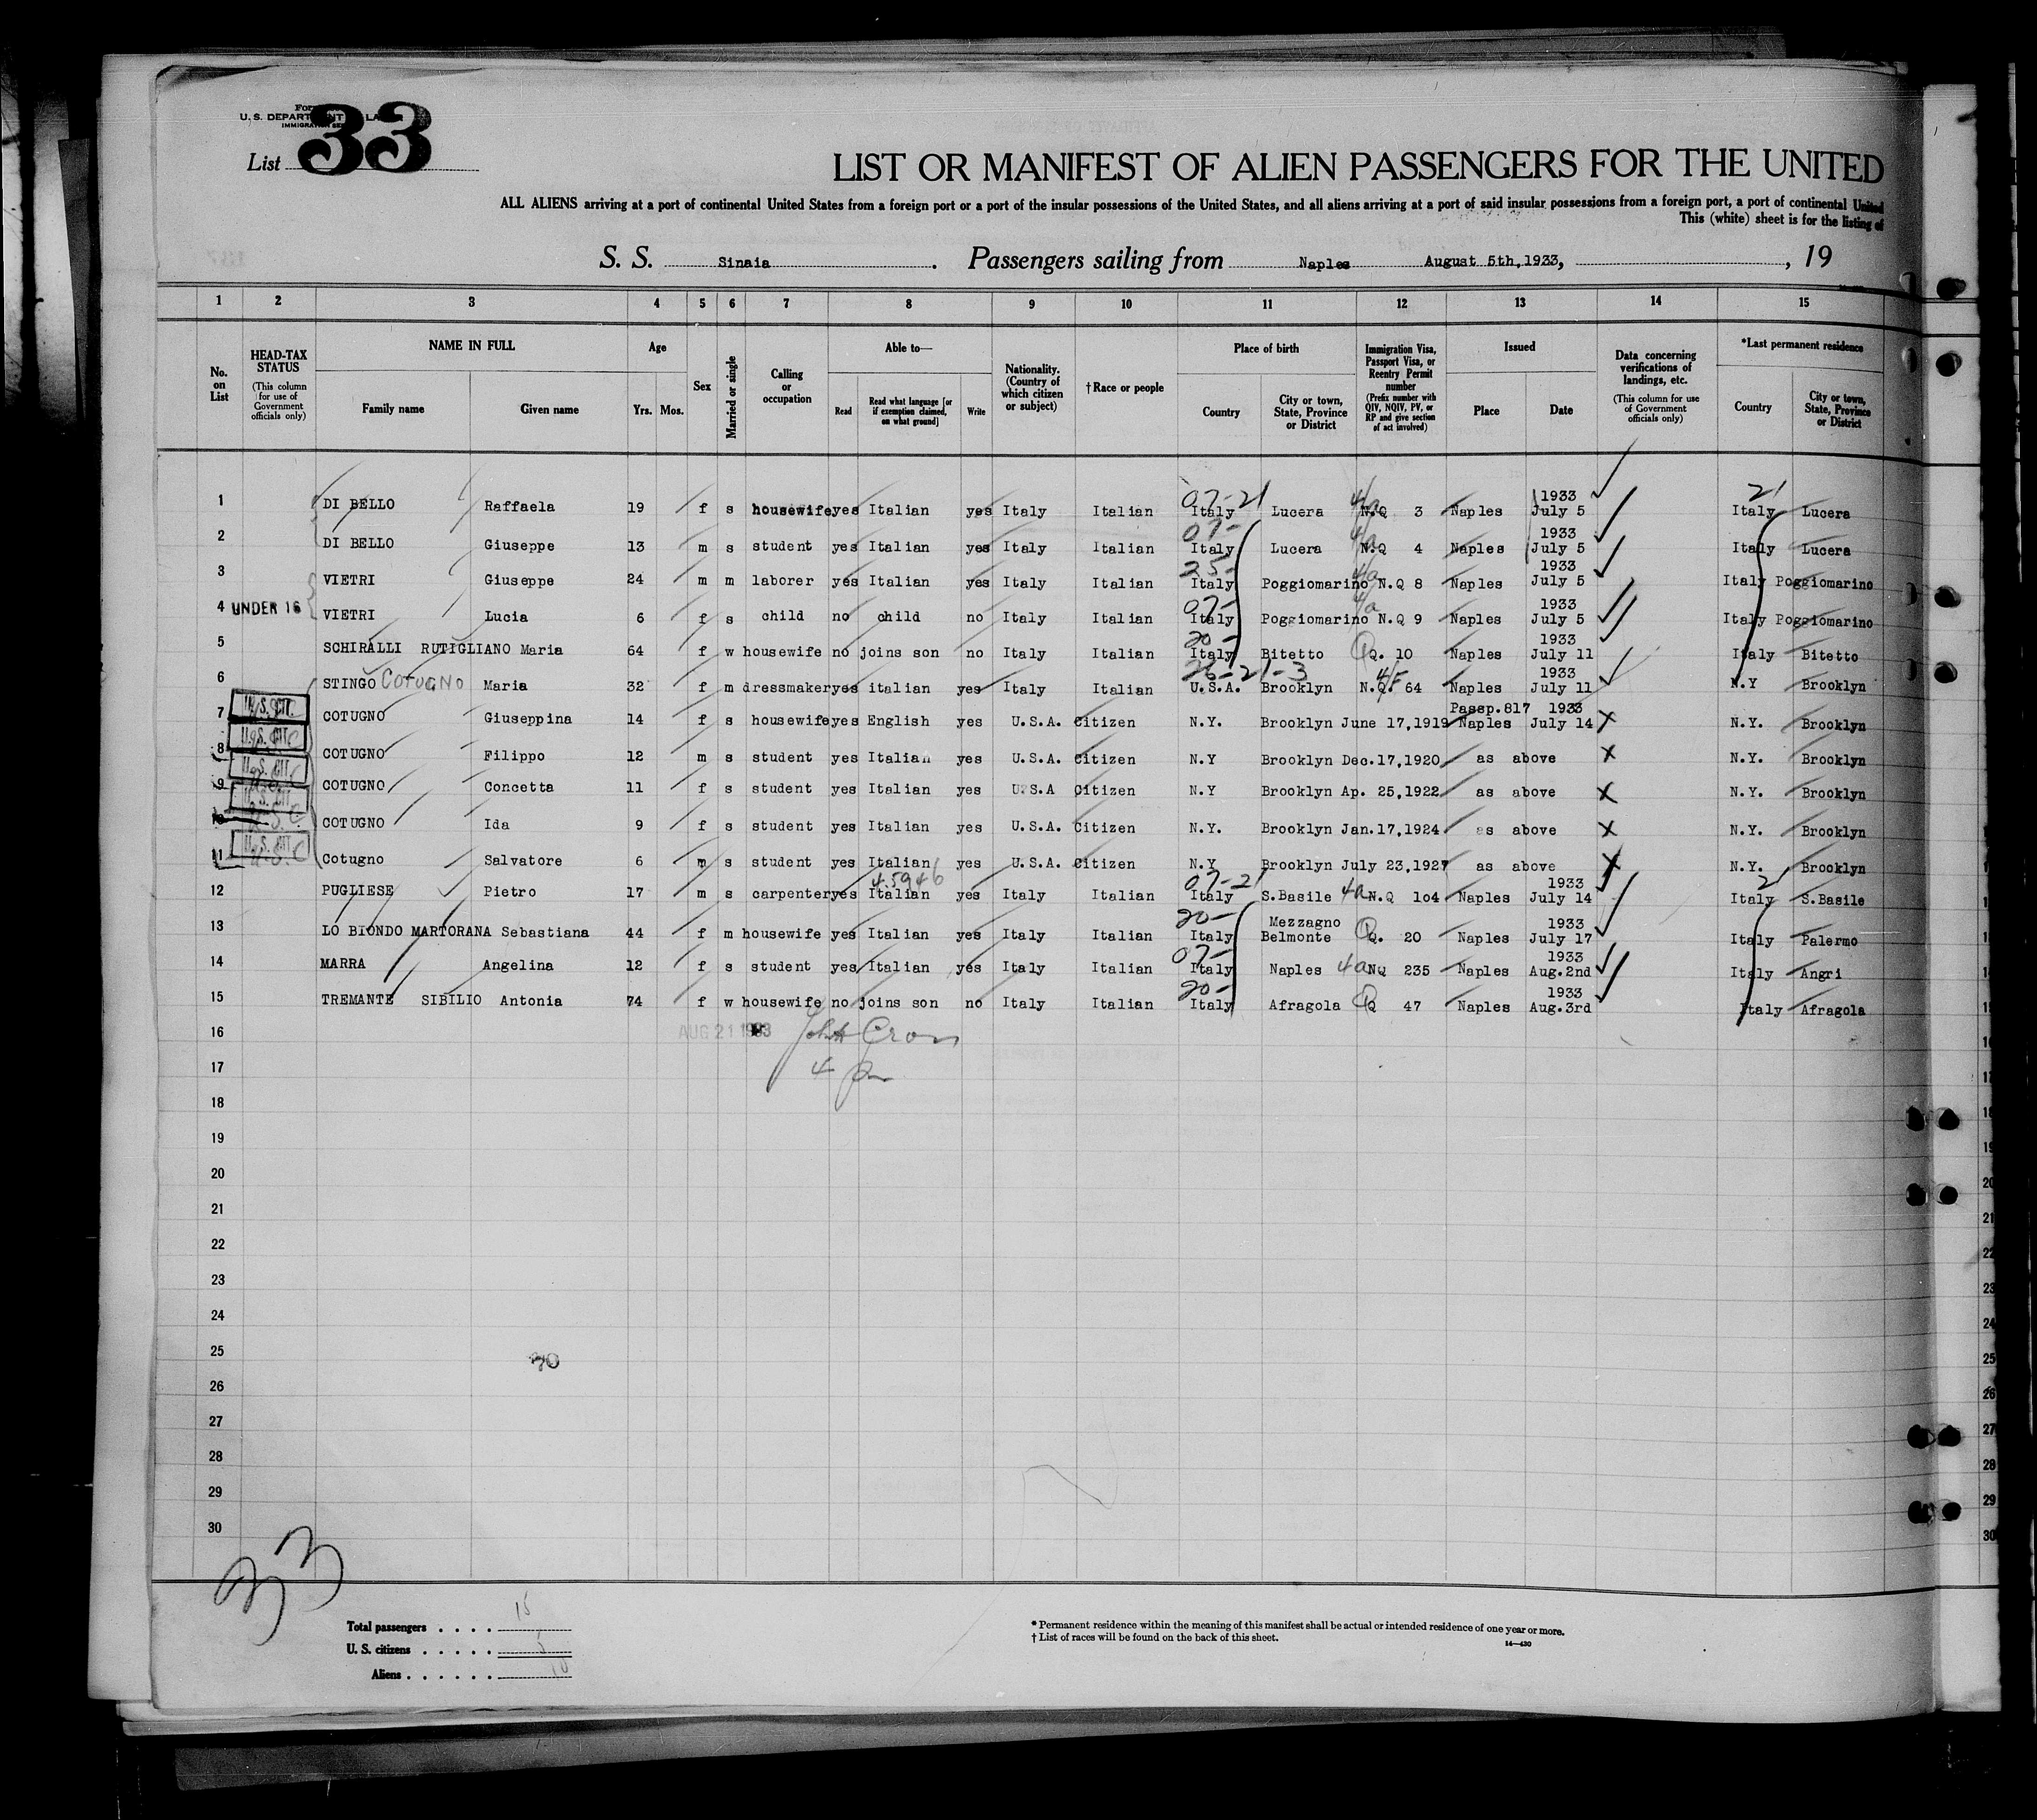 U. S. DEPARTMENT LA
IMMIGRATION SE
List 33
LIST OR MANIFEST OF ALIEN PASSENGERS FOR THE UNITED
ALL ALIENS arriving at a port of continental United States from a foreign port or a port of the insular possessions of the United States, and all aliens arriving at a port of said insular possessions from a foreign port, a port of continental United
This (white) sheet is for the listing of
S. S. Sinaia. Passengers sailing from Naples August 5th,1933, , 19
1 2 3 4 5 6 7 8 9 10 11 12 13 14 15
No. on List
HEAD-TAX STATUS (This column for use of Government officials only)
NAME IN FULL
Family name Given name
Age
Yrs. Mos.
Sex
Married or single
Calling or occupation
Able to—
Read
Read what language [or if exemption claimed, on what ground]
Write
Nationality. (Country of which citizen or subject)
† Race or people
Place of birth
Country
City or town, State, Province or District
Immigration Visa, Passport Visa, or Reentry Permit number (Prefix number with QIV, NQIV, PV, or RP and give section of act involved)
Issued
Place Date
Data concerning verifications of landings, etc. (This column for use of Government officials only)
*Last permanent residence
Country
City or town, State, Province or District
07-21 4/a 1933 21
1 DI BELLO Raffaela 19 f s housewife yes Italian yes Italy Italian Italy Lucera N.Q 3 Naples July 5 Italy Lucera
07- 4/a 1933
2 DI BELLO Giuseppe 13 m s student yes Italian yes Italy Italian Italy Lucera N.Q 4 Naples July 5 Italy Lucera
25- 4/a 1933
3 VIETRI Giuseppe 24 m m laborer yes Italian yes Italy Italian Italy Poggiomarino N.Q 8 Naples July 5 Italy Poggiomarino
07- 4/a 1933
4 UNDER 16 VIETRI Lucia 6 f s child no child no Italy Italian Italy Poggiomarino N.Q 9 Naples July 5 Italy Poggiomarino
20- 1933
5 SCHIRALLI RUTIGLIANO Maria 64 f w housewife no joins son no Italy Italian Italy Bitetto Q. 10 Naples July 11 Italy Bitetto
26-21-3 4/F 1933
6 STINGO COTUGNO Maria 32 f m dressmaker yes italian yes Italy Italian U.S.A. Brooklyn N.Q. 64 Naples July 11 N.Y Brooklyn
Passp.817 1933
7 U.S. CIT. COTUGNO Giuseppina 14 f s housewife yes English yes U.S.A. Citizen N.Y. Brooklyn June 17,1919 Naples July 14 X N.Y. Brooklyn
8 U.S. CIT. COTUGNO Filippo 12 m s student yes Italian yes U.S.A. Citizen N.Y Brooklyn Dec.17,1920 as above X N.Y. Brooklyn
9 U.S. CIT. COTUGNO Concetta 11 f s student yes Italian yes U.S.A Citizen N.Y Brooklyn Ap. 25,1922 as above X N.Y. Brooklyn
10 U.S. CIT. COTUGNO Ida 9 f s student yes Italian yes U.S.A. Citizen N.Y. Brooklyn Jan.17,1924 as above X N.Y. Brooklyn
11 U.S. CIT. U.S.C Cotugno Salvatore 6 m s student yes Italian yes U.S.A. Citizen N.Y Brooklyn July 23,1927 as above X N.Y. Brooklyn
45946 07-21 1933 21
12 PUGLIESE Pietro 17 m s carpenter yes Italian yes Italy Italian Italy S.Basile 4a N.Q 104 Naples July 14 Italy S.Basile
20- Mezzagno 1933
13 LO BIONDO MARTORANA Sebastiana 44 f m housewife yes Italian yes Italy Italian Italy Belmonte Q. 20 Naples July 17 Italy Palermo
07- 1933
14 MARRA Angelina 12 f s student yes Italian yes Italy Italian Italy Naples 4a NQ 235 Naples Aug.2nd Italy Angri
20- 1933
15 TREMANTE SIBILIO Antonia 74 f w housewife no joins son no Italy Italian Italy Afragola Q 47 Naples Aug.3rd Italy Afragola
16 AUG 21 1933
17
18
19
20
21
22
23
24
25
26
27
28
29
30
33
Total passengers . . . . 15
U. S. citizens . . . . . 5
Aliens . . . . . . 10
* Permanent residence within the meaning of this manifest shall be actual or intended residence of one year or more.
† List of races will be found on the back of this sheet.
14—430